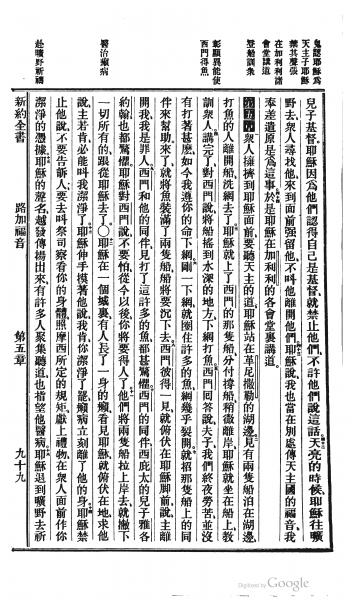 鬼認耶穌爲
天主子耶穌
禁其聲張
在加利利諸
會堂講道
登船訓衆
彰顯異能使
西門得魚
醫治癩病
赴曠野祈禱
兒子基督耶穌因爲他們認得自己是基督就禁止他們不許他們說這話天亮的時候耶穌往曠
野去衆人尋找他來到面前强留他不叫他離開他們耶穌說我也當在別處傳天主國的福音我
奉差遣原是爲這事於是耶穌在加利利的各會堂裏講道
第五章衆人擁擠到耶穌面前要聽天主的道耶穌站在革尼撒勒的湖邊見有兩隻船泊在湖邊
打魚的人離開船洗網去了耶穌就上了西門的那隻船分付撐船稍微離岸耶穌就坐在船上教
訓衆人講完了對西門說將船搖到水深的地方下網打魚西門囘答說夫子我們終夜勞苦並沒
有打著甚麽如今我遵你的命下網剛一下網就圈住許多的魚網幾乎裂開就招那隻船上的同
伴來幫助來了就將魚裝滿了兩隻船船將要沉下去西門彼得一見就俯伏在耶穌脚前說主離
開我我是罪人西門和他的同伴見打了這許多的魚都甚驚懼西門的同伴西庇太的兒子雅各
約翰也都驚懼耶穌對西門說不要怕從今以後你將要得人了他們將兩隻船拉上岸去就撇下
一切所有的跟從耶穌去了〇耶穌在一個城裏有人長了一身的癩看見耶穌就俯伏在地求他
說主若肯必能叫我潔淨了耶穌伸手摸著他說我肯你潔淨了罷癩病立刻離了他的身耶穌禁
止他說不要告訴人要去叫祭司察看你的身體照摩西所定的規矩獻上禮物在衆人面前作你
潔淨的憑據耶穌的聲名越發傳揚出來有許多人聚集聽道也指望他醫病耶穌退到曠野去祈
新約全書 路加福音 第五章 九十九
Digitized by Google